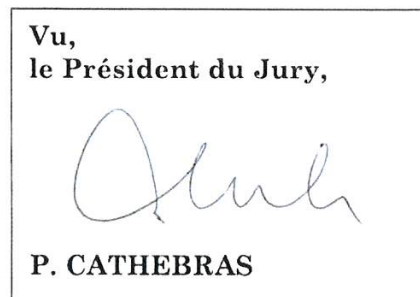 Vu,
le Président du Jury,
P. CATHEBRAS